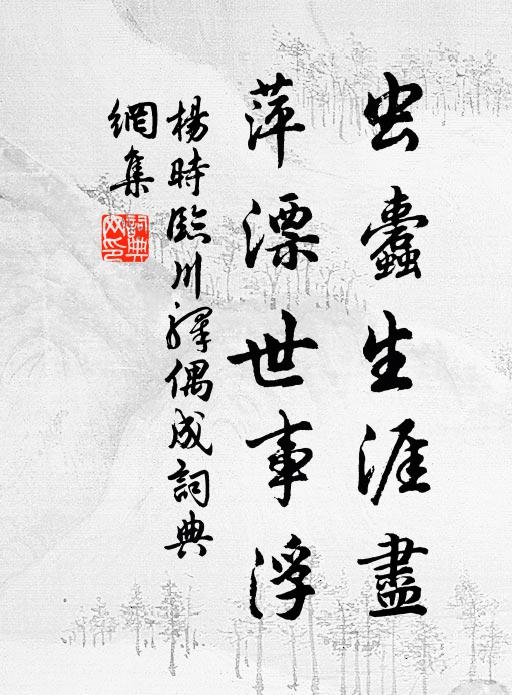 虫蠹生涯盡
萍漂世事浮
楊時臨川驛偶成詞典
網集
詞典網印